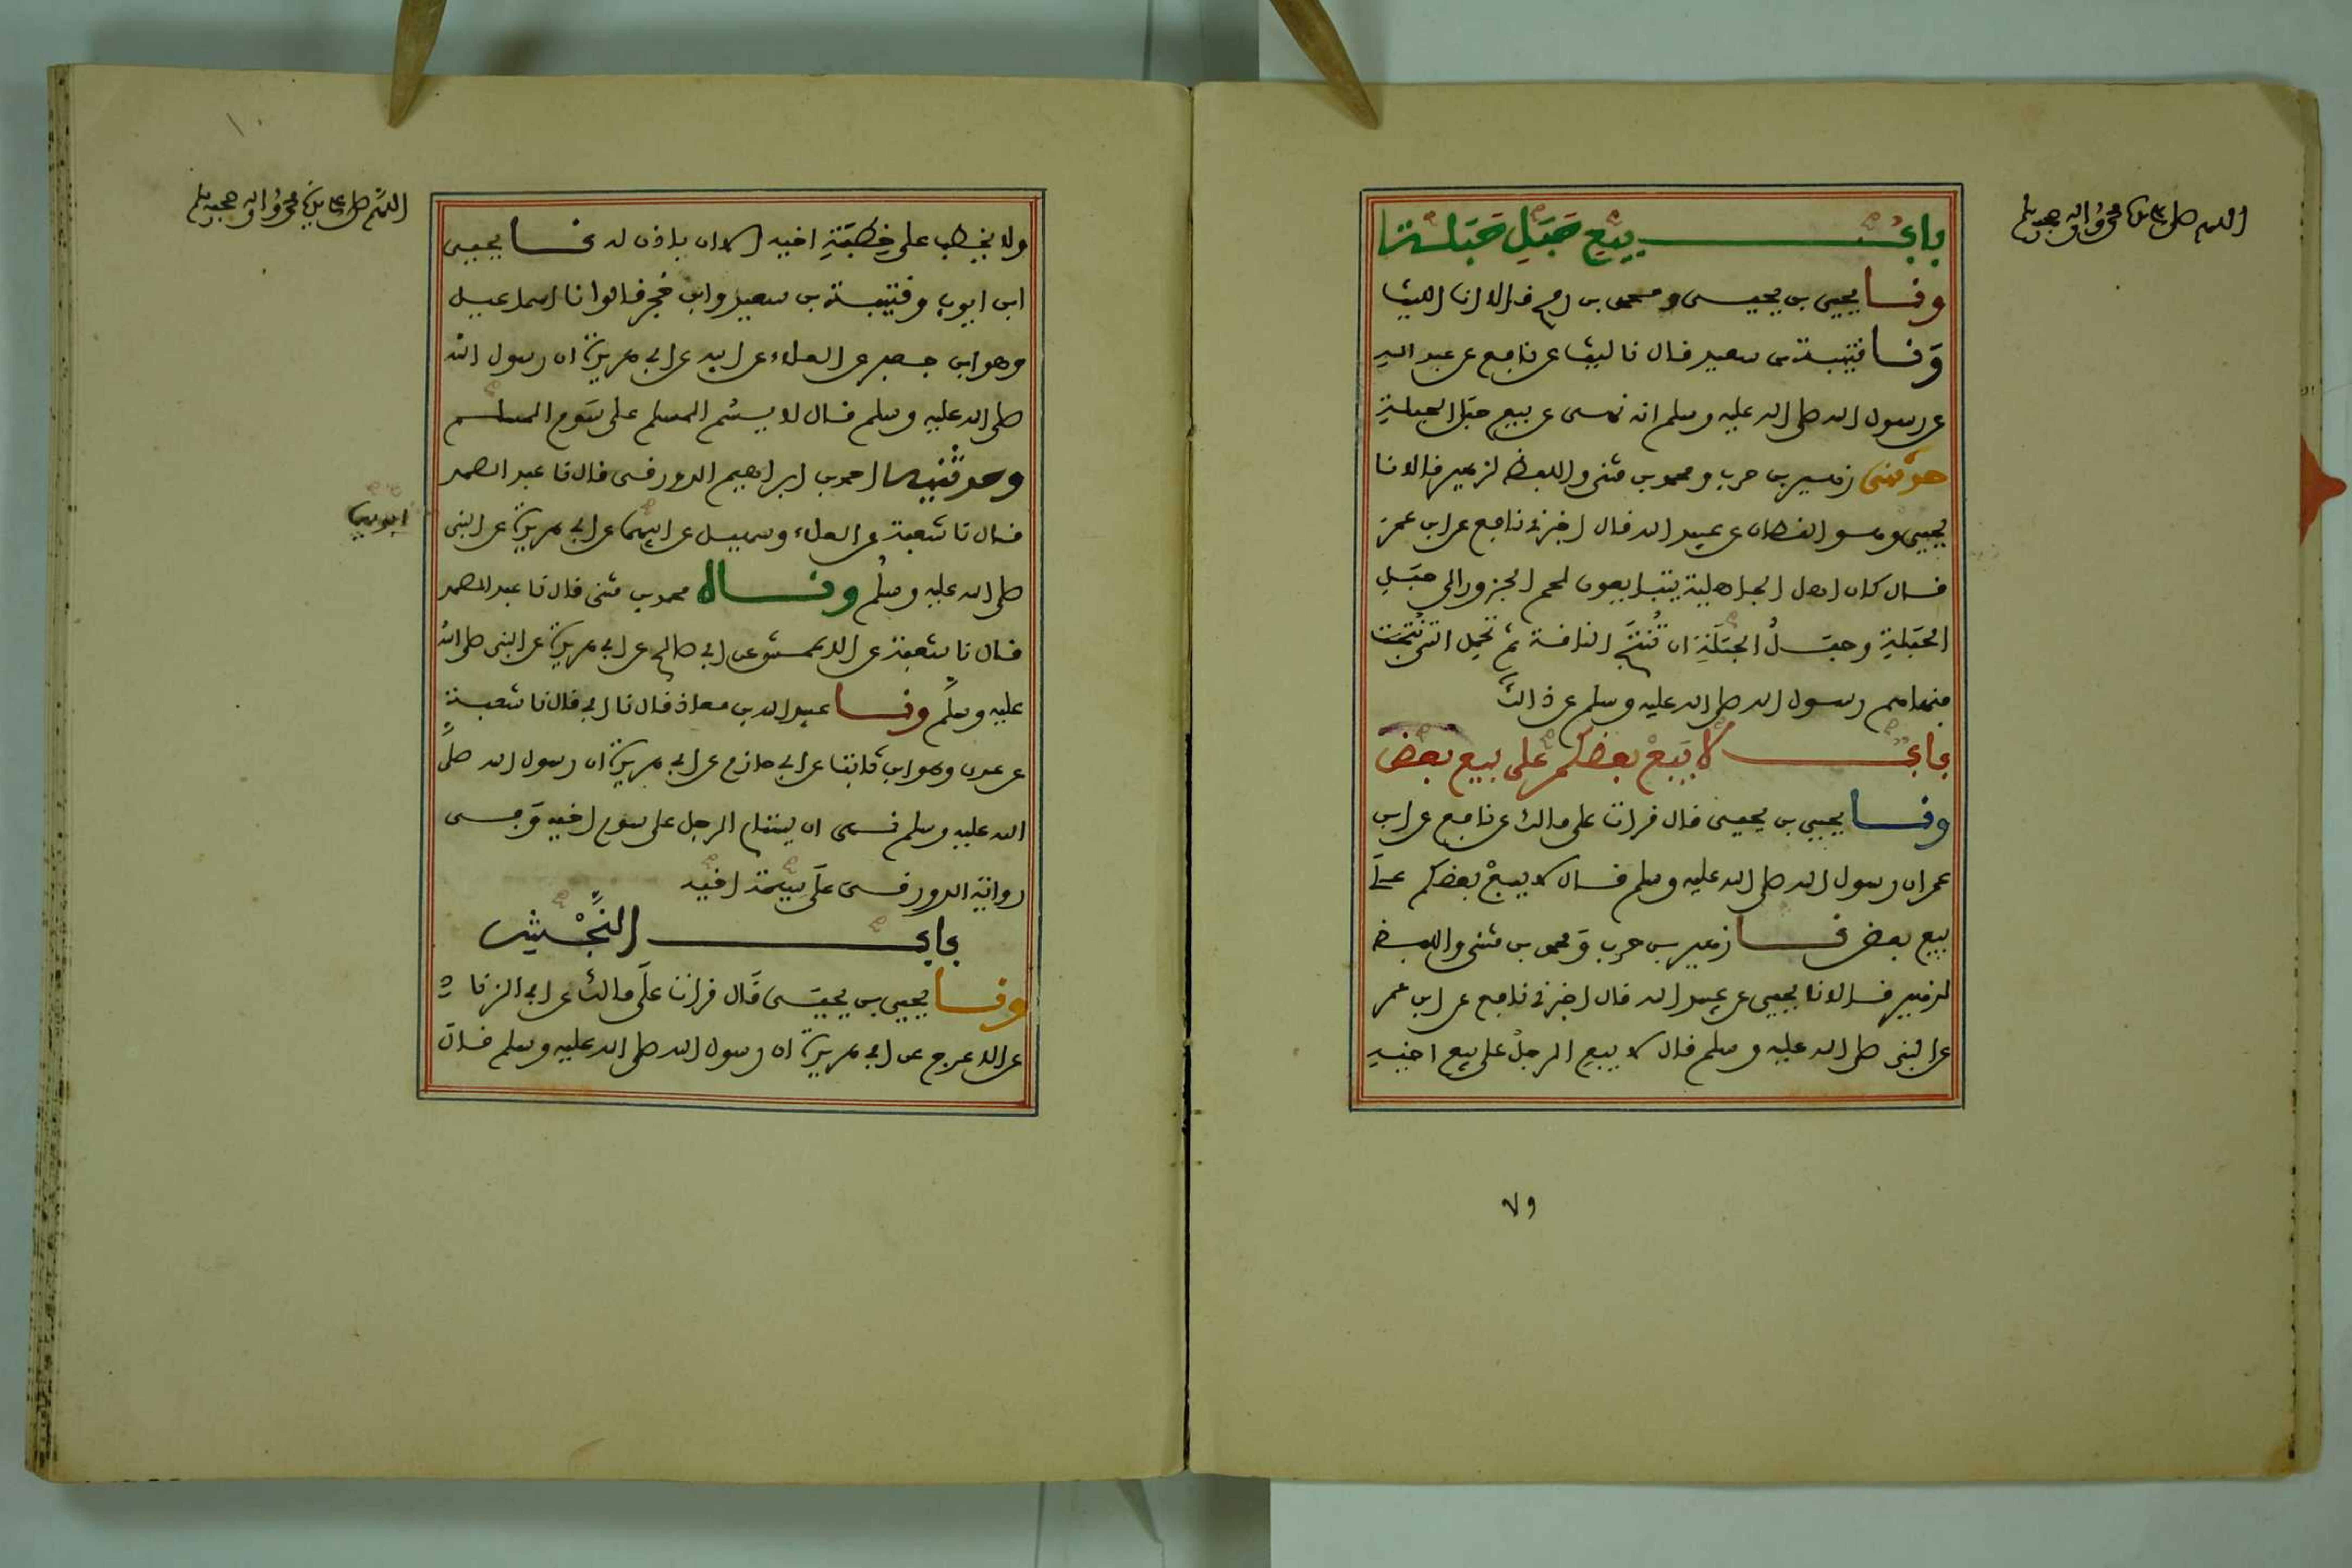 اللهم صل على سيدنا محمد وآله وصحبه وسلم
باب بيع حبل حبلة
ونا يحيى بن يحيى ومحمد بن رمح قالا انا الليث
ونا قتيبة بن سعيد قال نا ليث عن نافع عن عبد الله
عن رسول الله صلى الله عليه وسلم انه نهى عن بيع حبل الحبلة
حدثني زهير بن حرب ومحمد بن مثنى واللفظ لزهير قالا نا
يحيى وهو القطان عن عبيد الله قال اخبرني نافع عن ابن عمر
قال كان اهل الجاهلية يتبايعون لحم الجزور الى حبل
الحبلة وحبل الحبلة ان تنتج الناقة ثم تحمل التي نتجت
فنهاهم رسول الله صلى الله عليه وسلم عن ذالك
باب لا يبع بعضكم على بيع بعض
ونا يحيى بن يحيى قال قرات على مالك عن نافع عن ابن
عمر ان رسول الله صلى الله عليه وسلم قال لا يبع بعضكم على
بيع بعض نا زهير بن حرب ومحمد بن مثنى واللفظ
لزهير قالا نا يحيى عن عبيد الله قال اخبرني نافع عن ابن عمر
عن النبي صلى الله عليه وسلم قال لا يبع الرجل على بيع اخيه
٧٩
اللهم صل على سيدنا محمد وآله وصحبه وسلم
ولا يخطب على خطبة اخيه الا ان ياذن له نا يحيى
ابن ايوب وقتيبة بن سعيد وابن حجر قالوا نا اسماعيل
وهو ابن جعفر عن العلاء عن ابيه عن ابي هريرة ان رسول الله
صلى الله عليه وسلم قال لا يسم المسلم على سوم المسلم
وحدثنيه احمد بن ابراهيم الدورقي قال نا عبد الصمد
قال نا شعبة عن العلاء وسهيل عن ابيهما عن ابي هريرة عن النبي
ابويهما
صلى الله عليه وسلم وناه محمد بن مثنى قال نا عبد الصمد
قال نا شعبة عن الاعمش عن ابي صالح عن ابي هريرة عن النبي صلى الله
عليه وسلم ونا عبيد الله بن معاذ قال نا ابي قال نا شعبة
عن عدي وهو ابن ثابت عن ابي حازم عن ابي هريرة ان رسول الله صلى
الله عليه وسلم نهى ان يستام الرجل على سوم اخيه وفي
رواية الدورقي على سيمة اخيه
باب النجش
ونا يحيى بن يحيى قال قرات على مالك عن ابي الزناد
عن الاعرج عن ابي هريرة ان رسول الله صلى الله عليه وسلم قال